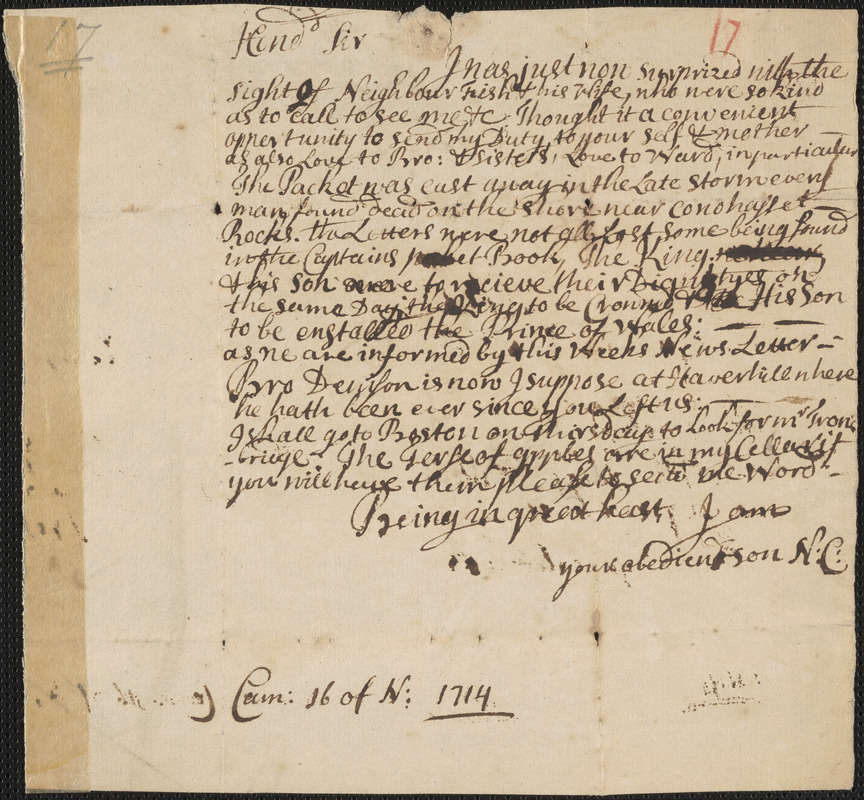 17
17
Hond Sir
I was just now surprized with the
sight of Neighbour Fish & his Wife, who were so kind
as to call to see me &c Thought it a convenient
opportunity to send my Duty to your self & mother
as also Love to Bro: & sisters, Love to Ward, in particular
The Packet was cast away in the Late storm every
man found dead on the shore near Conohasset
Rocks. the Letters were not all Lost some being found
in the Captains Book, The King
& his son were to recieve their Dignityes on
the same Day, the King to be Crowned & His son
to be enstalled the Prince of Wales:
as we are informed by this Weeks News Letter
Bro Denison is now I suppose at Haverhill where
he hath been ever since you Left us:
I shall go to Boston on Thirsday to Look for mr Iron
-bridge - The of apples are in my Cellar if
you will have them please to send me Word -
Being in great hast I am
your obedient son N: C:
Cam: 16 of N: 1714